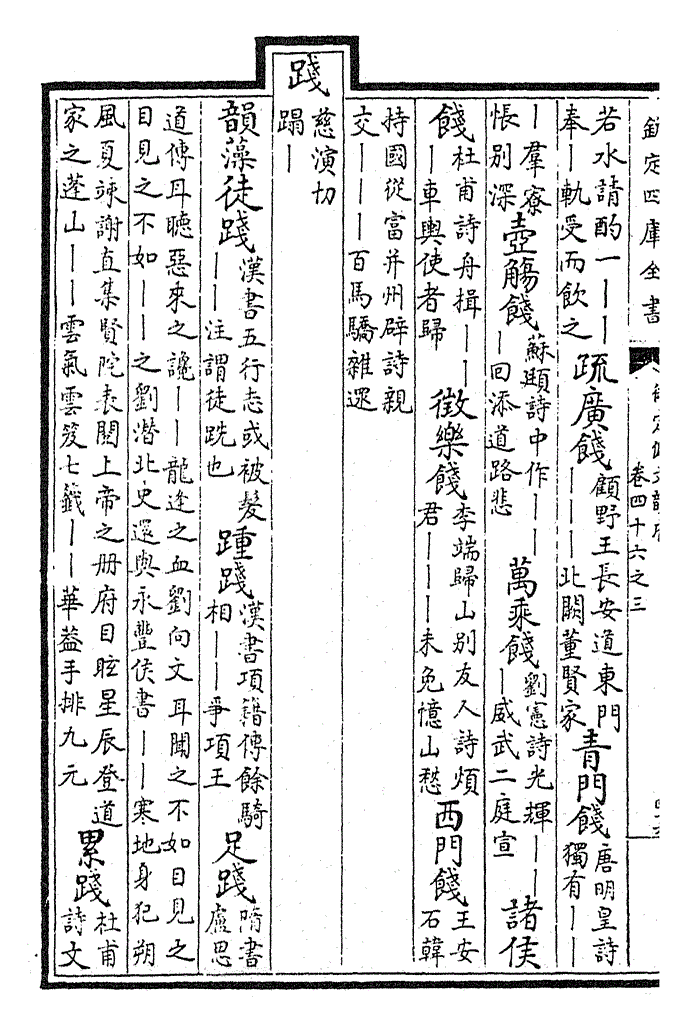 欽定四庫全書
卷四十六之三
若水請酌一｜｜｜奉｜軌受而飲之疏廣餞顧野王長安道東門｜｜｜北闕董賢家青門餞唐明皇詩獨有｜｜
｜羣寮悵別深壺觴餞蘇頲詩中作｜｜｜回添道路悲萬乘餞劉憲詩光輝｜｜｜威武二庭宣諸侯
餞杜甫詩舟揖｜｜｜車輿使者歸徵樂餞李端歸山別友人詩煩君｜｜｜未免憶山愁西門餞王安石韓
持國從富并州辟詩親交｜｜｜百馬驕雜遝
踐慈演切蹋｜
韻藻徒踐漢書五行志或被髮｜｜注謂徒跣也踵踐漢書項籍傳餘騎相｜｜爭項王足踐隋書盧思
道傳耳聽惡來之讒｜｜龍逢之血劉向文耳聞之不如目見之目見之不如｜｜之劉潛北史還與永豐侯書｜｜寒地身犯朔
風夏竦謝直集賢院表閱上帝之册府目眩星辰登道家之蓬山｜｜雲氣雲笈七籤｜｜華蓋手排九元累踐杜甫詩文